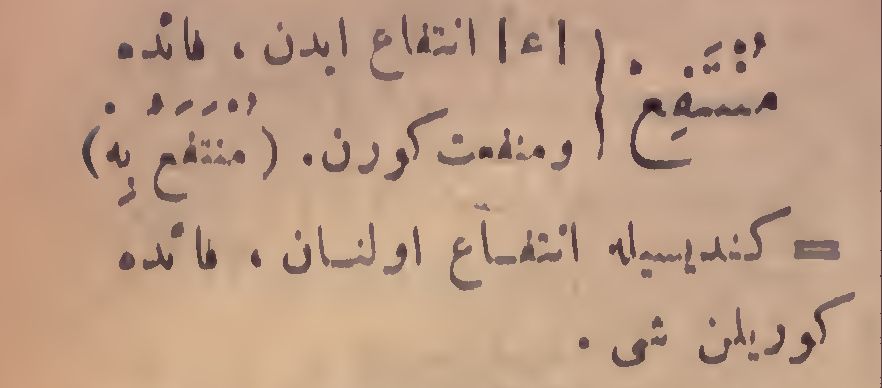 مُنْتَفِعْ { |ءا| انتفاع ایدن ، فائده
ومنفعت كورن. (مُنْتَفَع بِه)
= كندیسیله انتفاع اولنان ، فائده
كوریلن شی .